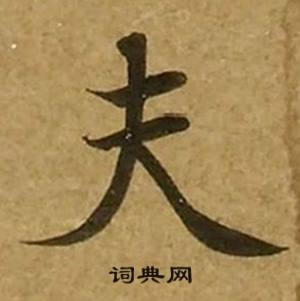 夫
词典网